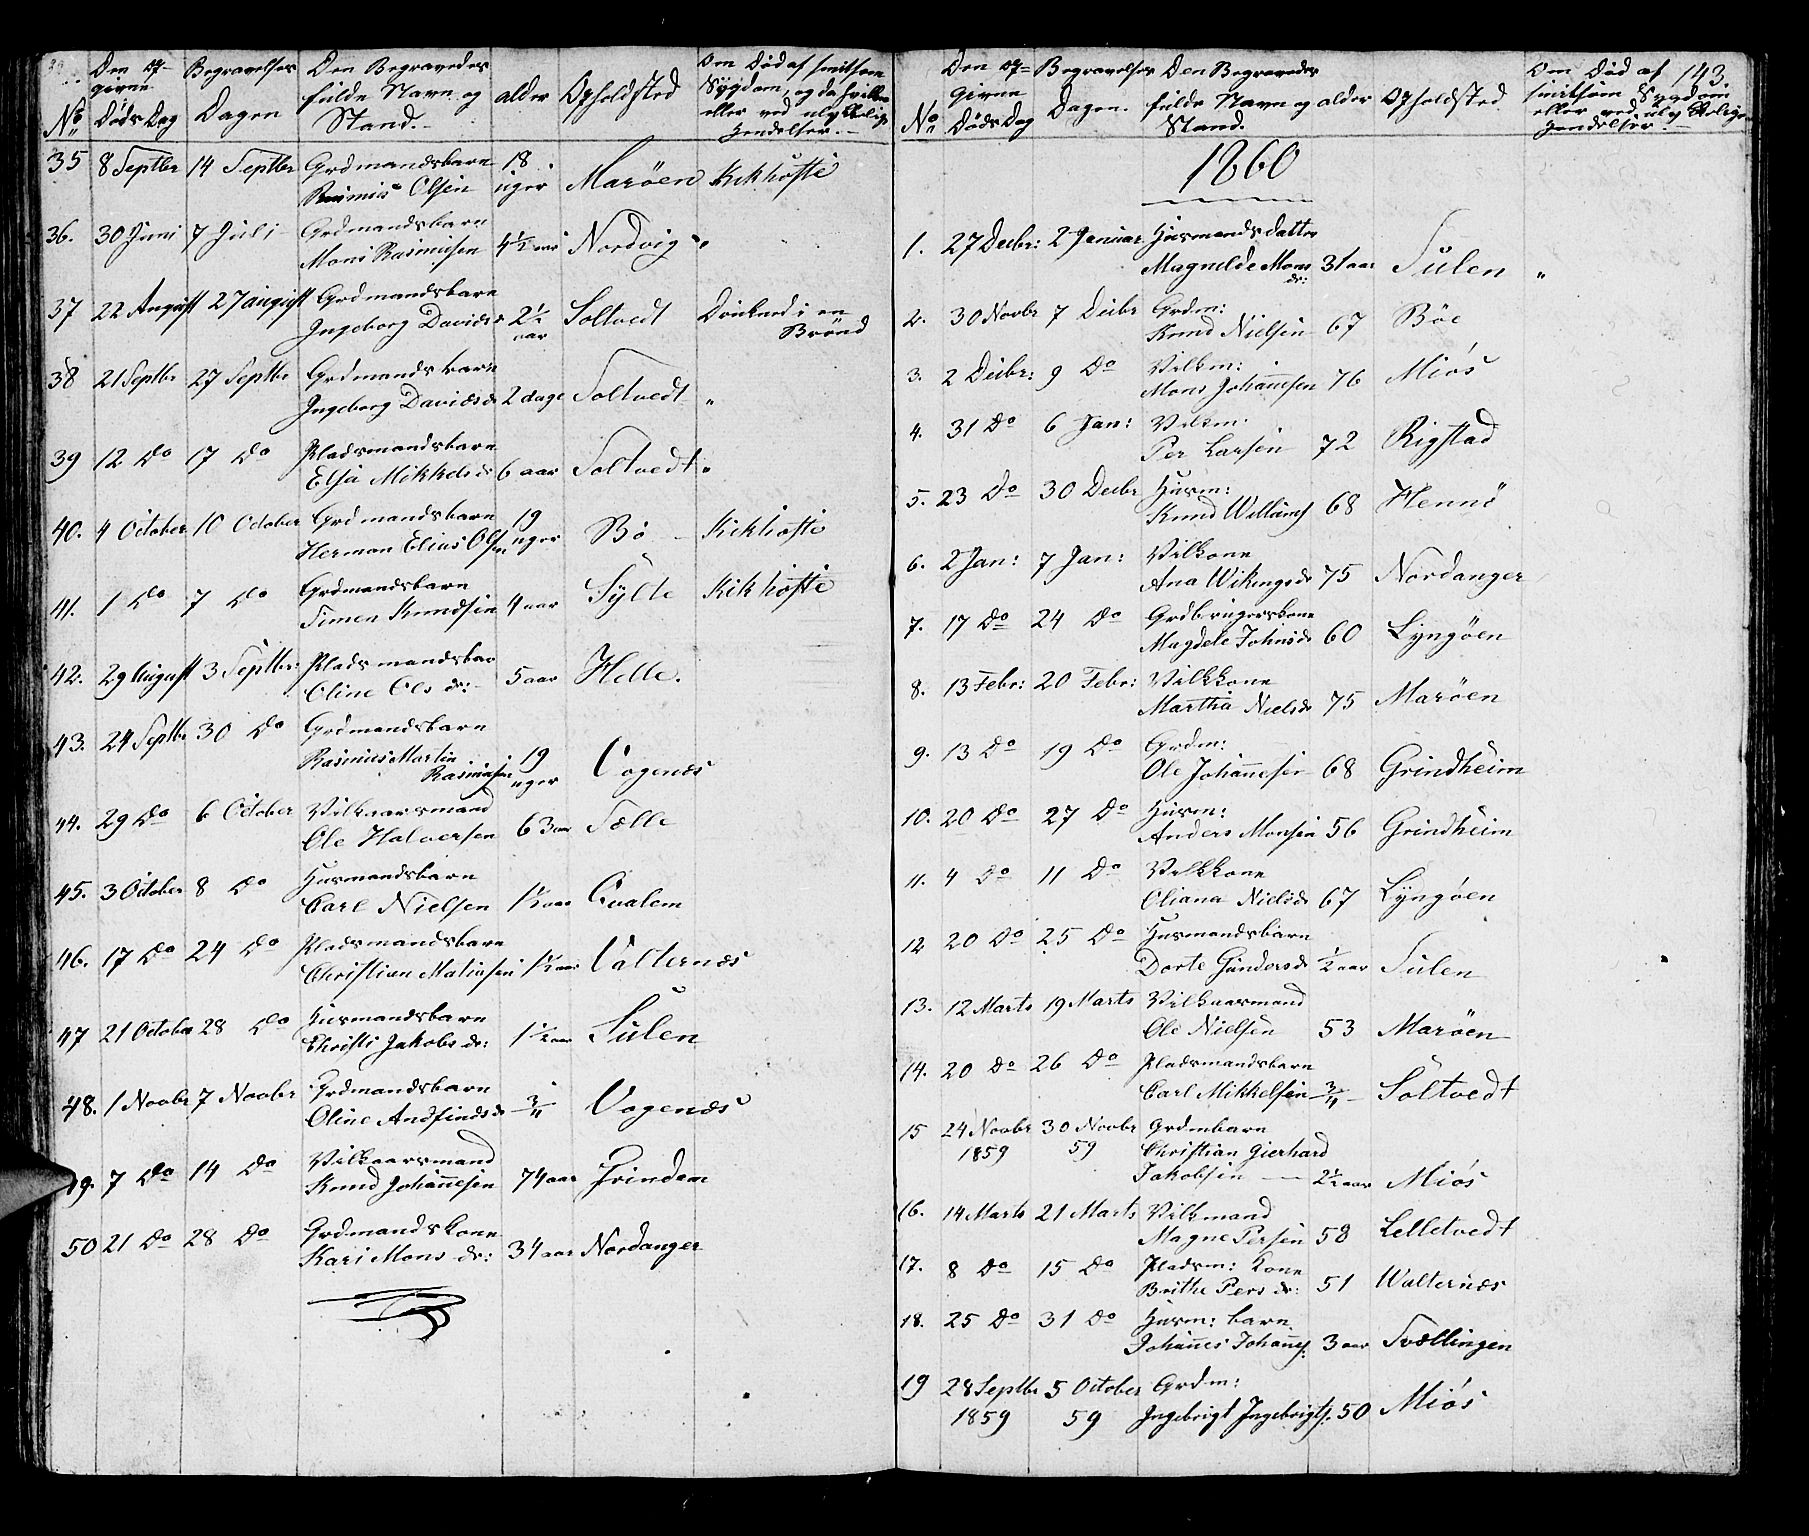 No
Den op-
givne
Døds Dag
Begravelses
Dagen
Den Begravedes
fulde Navn og
Stand.
alder
Opholdsted
Om Død af smitsom
Sygdom, og da hvilken
eller ved ulykkelig
Hendelser.
35 8 Septbr 14 Septbr Grdmandsbarn 18
Rasmus Olsen uger Marøen Kikhoste
36. 30 Juni 7 Juli Grdmandsbarn
Mons Rasmusen 4½ aar Nordvig "
37 22 August 27 august Grdmandsbarn
Ingeborg Davidsd 2½ aar Soltvedt Druknet i en
Brønd
38 21 Septbr 27 Septbr Grdmandsbarn
Ingeborg Davidsd 2 dage Soltvedt "
39 12 do 17 do Pladsmandsbarn
Elsa Mikkelsd 6 aar Soltvedt "
40. 4 October 10 October Grdmandsbarn 19
Herman Elias Olsen uger Bø Kikhoste
41. 1 do 7 do Grdmandsbarn
Simen Knudsen 4 aar Sylte Kikhoste
42. 29 August 3 Septbr: Pladsmandsbar
Oline Ols dr: 5 aar Helle.
43. 24 Septbr 30 do Grdmandsbarn
Rasmus Martin 19
Rasmusen uger Vogenæs
44. 29 do 6 October Vilkaarsmand
Ole Halversen 63 aar Sælle
45. 3 October 8 do Husmandsbarn
Carl Nielsen 1½ aar Qvalem
46. 17 do 24 do Pladsmandsbarn
Christian Matiasen 1½ aar Valternæs
47 21 October 28 do Husmandsbarn
Christi Jakobs dr: 1½ aar Sulen
48. 1 Novbr 7 Novbr Grdmandsbarn
Oline Andfindsd ¾ Vogenæs
49. 7 do 14 do Vilkaarsmand
Knud Johannesen 74 aar Grindem
50 21 do 28 do Grdmandskone
Kari Mons dr: 34 aar Nordanger
143.
No
Den op-
givne
Døds Dag
Begravelses
Dagen.
Den Begravedes
fulde Navn og
Stand.
alder
Opholdsted
Om Død af
smitsom Sygdom
eller ved ulykkelige
Hendelser.
1860
1. 27 Decbr: 2 Januar Husmandsdatter
Magnilde Mons dr: 31 aar Sulen "
2. 30 Novbr 7 Decbr Grdm:
Knud Nielsen 67 Bøe
3. 2 Decbr: 9 do Vilkm:
Mons Johannesen 76 Miøs
4. 31 do 6 Jan: Vilkm:
Per Larsen 72 Rigstad
5. 23 do 30 Decbr Husm:
Knud Willums 68 Hennø
6. 2 Jan: 7 Jan: Vilkone
Ana Wikingsd 75 Nordanger
7. 17 do 24 do Grdbrugerskone
Magdele Johnsd 60 Lyngøen
8. 13 Febr: 20 Febr: Vilkkone
Martha Nielsd 75 Marøen
9. 13 do 19 do Grdm:
Ole Johannesen 68 Grindheim
10. 20 do 27 do Husm:
Anders Monsen 56 Grindheim
11. 4 do 11 do Vilkkone
Oliana Nielsd 67 Lyngøen
12 20 do 25 do Husmandsbarn
Dorte Gundersd ½ aar Sulen
13. 12 Marts 19 Marts Vilkaarsmand
Ole Nielsen 53 Marøen
14. 20 do 26 do Pladsmandsbarn
Carl Mikkelsen ¾ Soltvedt
15 24 Novbr 30 Novbr Grdmbarn
1859 59 Christian Gierhard
Jakobsen 2½ aar Miøs
16. 14 Marts 21 Marts Vilkmand
Magne Persen 58 Lelletvedt
17. 8 do 15 do Pladsm: kone
Brithe Pers dr: 51 Walternæs
18. 25 do 31 do Husm: barn
Johannes Johannes. 3 aar Svællingen
19 28 Septbr 5 October Grdm:
1859 59 Ingebrigt Ingebrigts. 50 Miøs